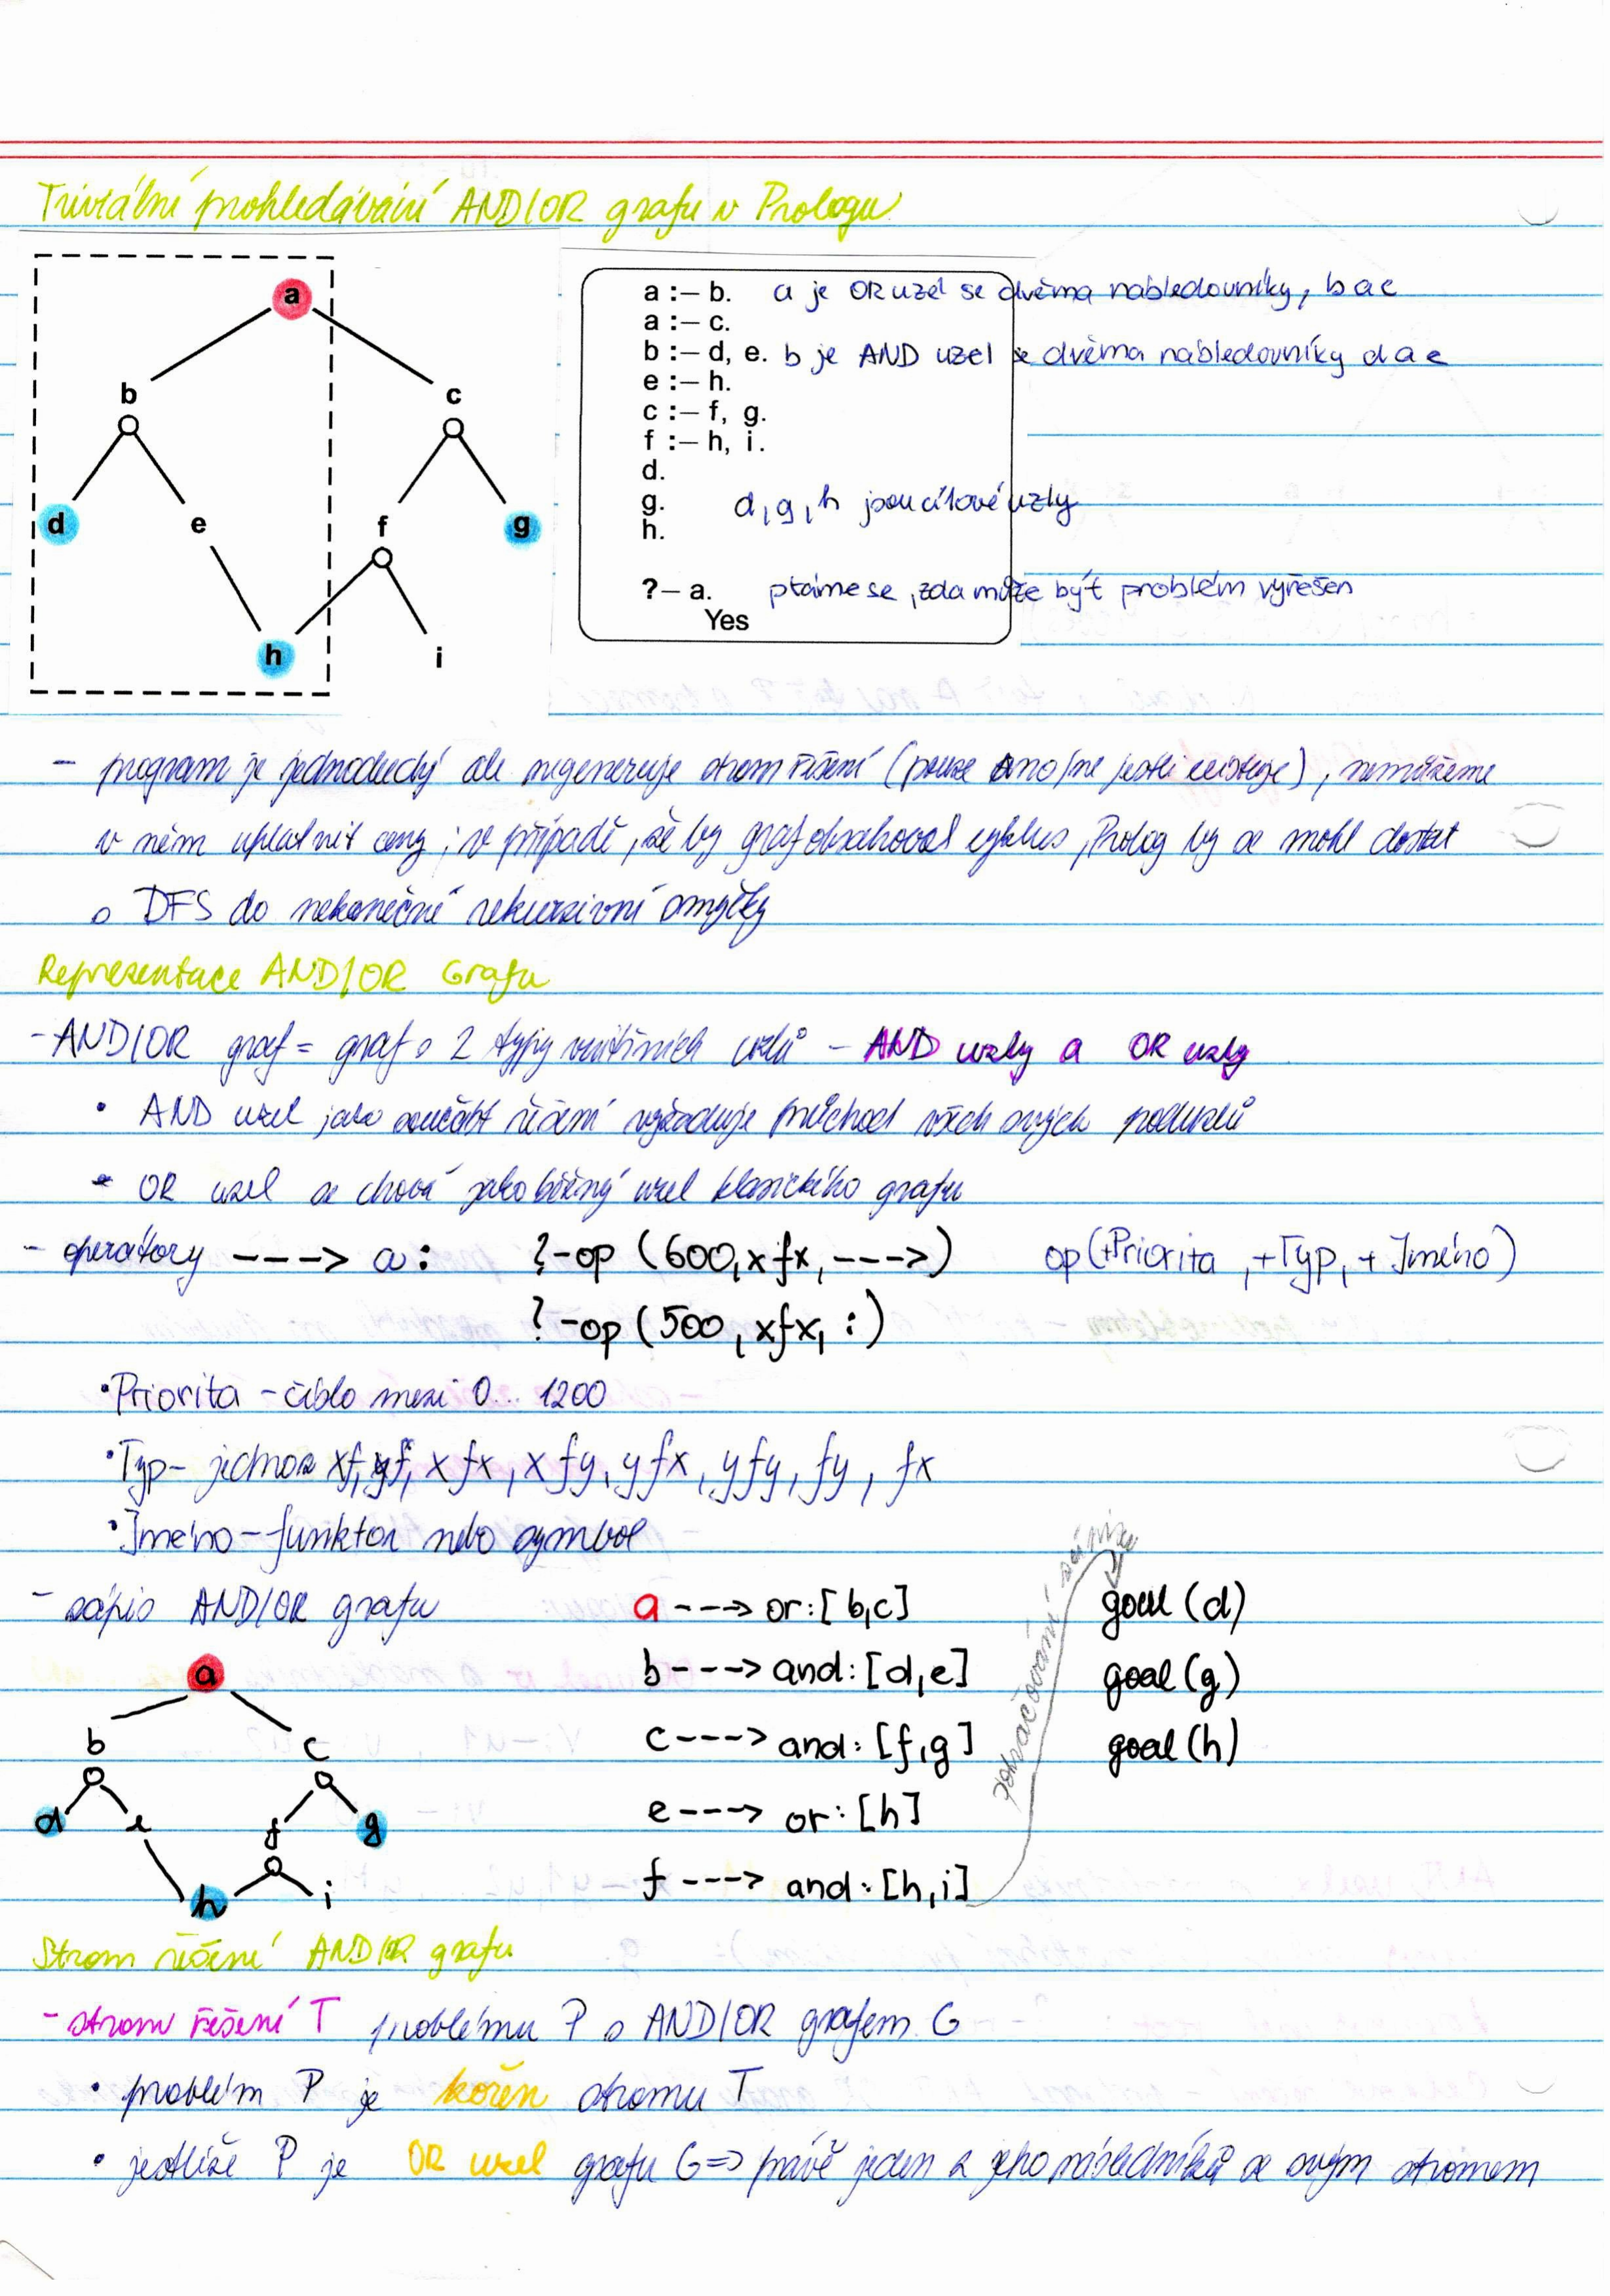 Triviální prohledávání AND/OR grafu v Prologu
a
b c
d e f g
h i
a :– b. a je OR uzel se dvěma následovníky, b a c
a :– c.
b :– d, e. b je AND uzel se dvěma následovníky d a e
e :– h.
c :– f, g.
f :– h, i.
d.
g. d, g, h jsou cílové uzly
h.
?– a. ptáme se, zda může být problém vyřešen
Yes
- program je jednoduchý ale negeneruje strom řešení (pouze ano/ne jestli existuje), nemůžeme
v něm uplatnit ceny; v případě, že by graf obsahoval cyklus, Prolog by se mohl dostat
s DFS do nekonečné rekurzivní smyčky
Reprezentace AND/OR Grafu
- AND/OR graf = graf s 2 typy vnitřních uzlů - AND uzly a OR uzly
• AND uzel jako součást řešení vyžaduje průchod všech svých poduzlů
• OR uzel se chová jako běžný uzel klasického grafu
- operátory ---> a : ?-op (600, xfx, --->) op(+Priorita, +Typ, + Jméno)
?-op (500, xfx, :)
• Priorita - číslo mezi 0... 1200
• Typ - jedno z xf, yf, xfx, xfy, yfx, yfy, fy, fx
• Jméno - funktor nebo symbol
- zápis AND/OR grafu a ---> or:[b,c] goal (d)
b ---> and:[d,e] goal (g)
c ---> and:[f,g] goal (h)
e ---> or:[h]
f ---> and:[h,i]
pokračování zápisu
a
b c
d e f g
h i
Strom řešení AND/OR grafu
- strom řešení T problému P s AND/OR grafem G
• problém P je kořen stromu T
• jestliže P je OR uzel grafu G => právě jeden z jeho následníků se svým stromem